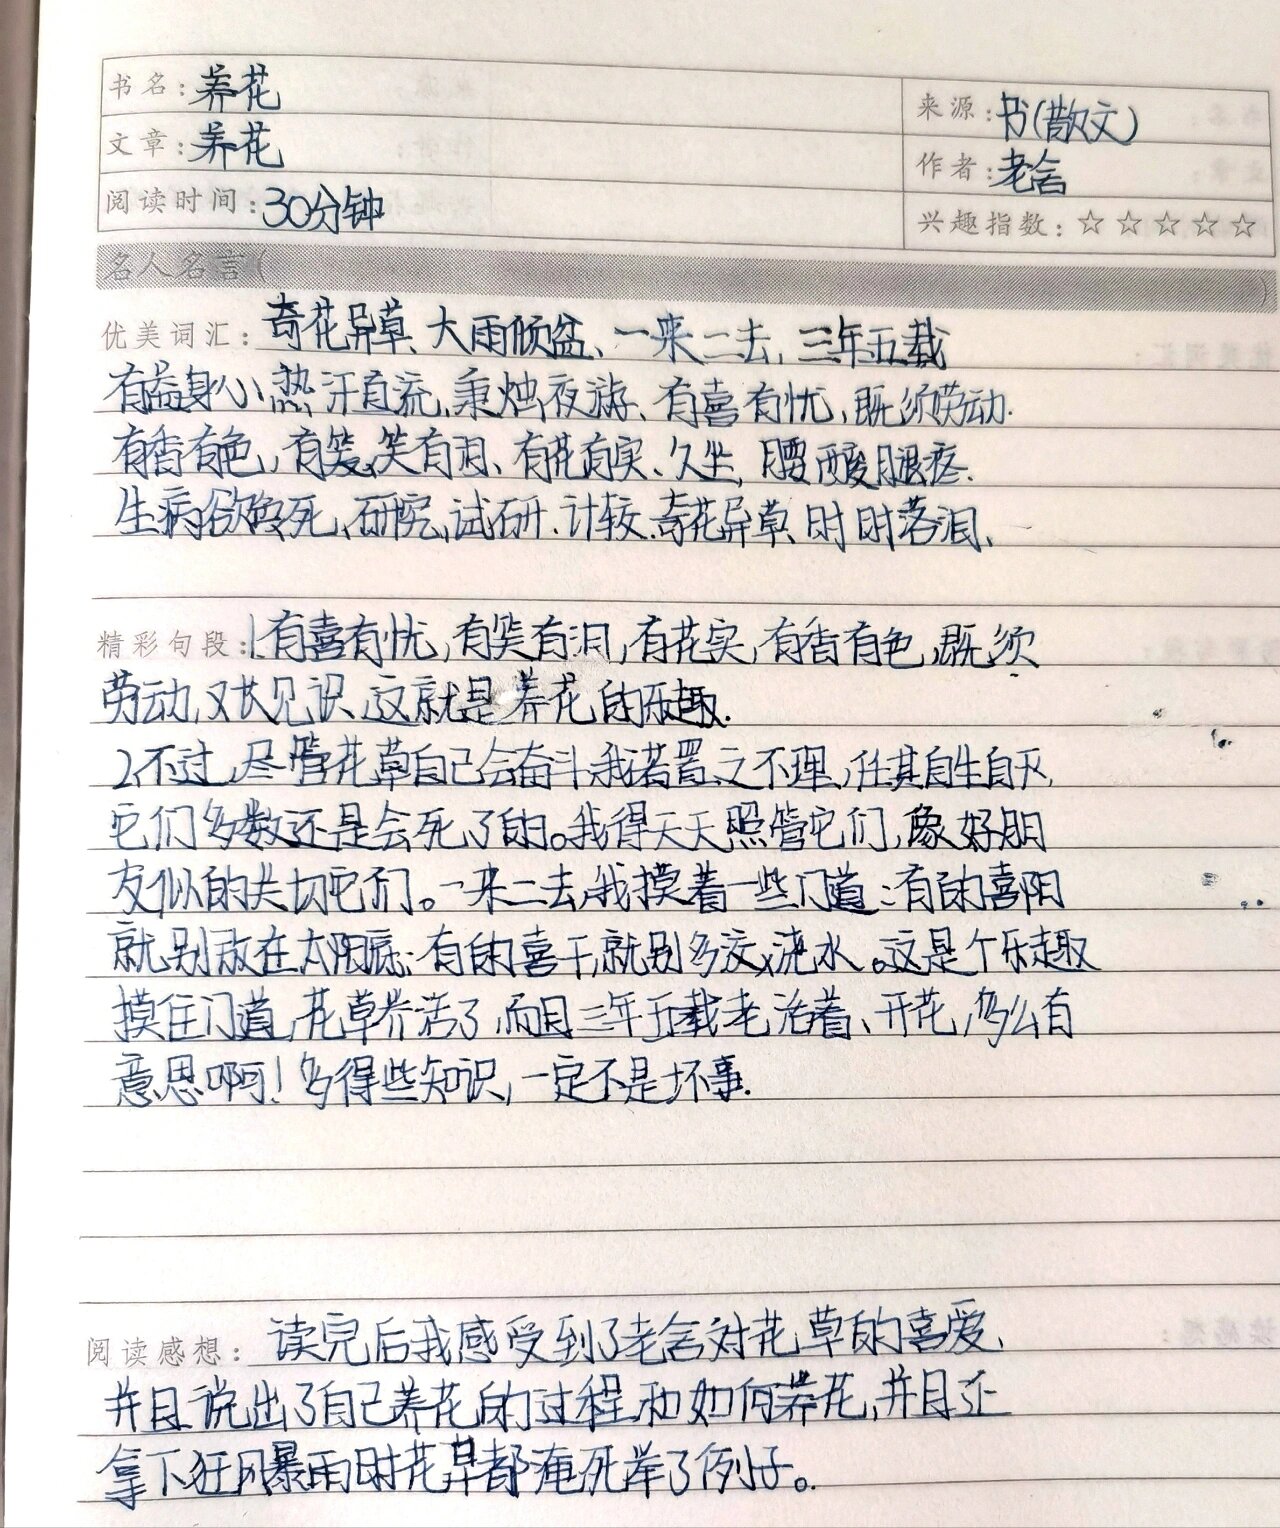 书名:养花
来源:书(散文)
文章:养花
作者:老舍
阅读时间:30分钟
兴趣指数:☆☆☆☆☆
名人名言(
优美词汇:奇花异草、大雨倾盆、一来二去,三年五载
有益身心,热汗直流,秉烛夜游、有喜有忧,既须劳动.
有香有色,有笑,笑有泪、有花有实、久坐,腰酸腿疼.
生病欲死,研究,试研.计较.奇花异草、时时落泪、
精彩句段:1.有喜有忧,有笑有泪,有花实,有香有色,既须
劳动,又长见识,这就是养花的乐趣.
2,不过,尽管花草自己会奋斗,我若置之不理,任其自生自灭,
它们多数还是会死了的。我得天天照管它们,像好朋
友似的关切它们。一来二去,我摸着一些门道:有的喜阳
就别放在太阳底;有的喜干,就别多浇水。这是个乐趣
摸住门道,花草养活了,而且三年五载老活着、开花,多么有
意思啊!多得些知识,一定不是坏事.
阅读感想:读完后我感受到了老舍对花草的喜爱、
并且说出了自己养花的过程和如何养花,并且还
拿下狂风暴雨时花草都淹死举了例子。